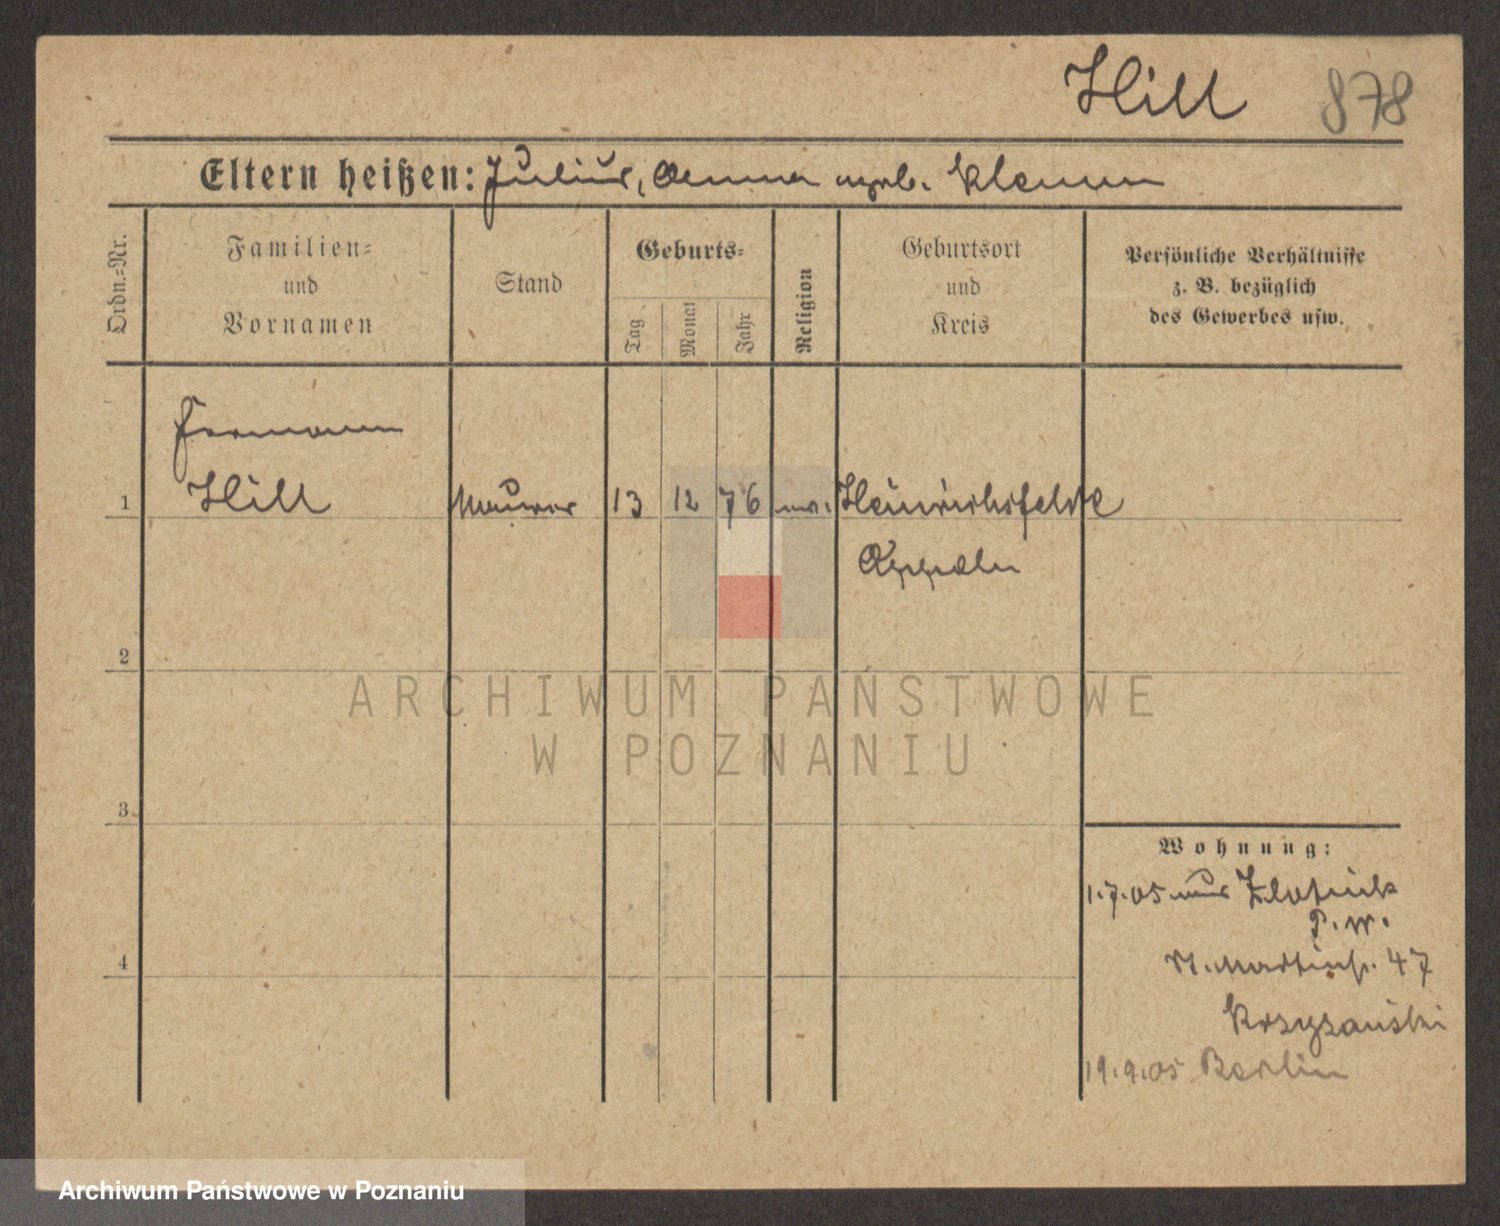 Hill 878
Eltern heißen: Julius, Anna geb. Klemm
Ordn.=Nr.
Familien=
und
Vornamen
Stand
Geburts=
Tag
Monat
Jahr
Religion
Geburtsort
und
Kreis
Persönliche Verhältnisse
z. B. bezüglich
des Gewerbes usw.
Hermann
1 Hill Maurer 13 12 76 ev. Heinrichsfelde
Oppeln
2
3
4
Wohnung:
1.7.05 aus Zlotnik
P. W.
St. Martinstr. 47
Krzyzański
19.9.05 Berlin
ARCHIWUM PAŃSTWOWE
W POZNANIU
Archiwum Państwowe w Poznaniu